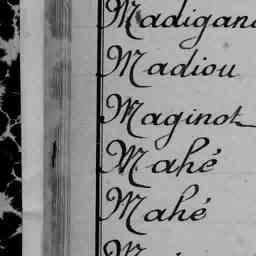 Madigand
Madiou
Maginot
Mahé
Mahé